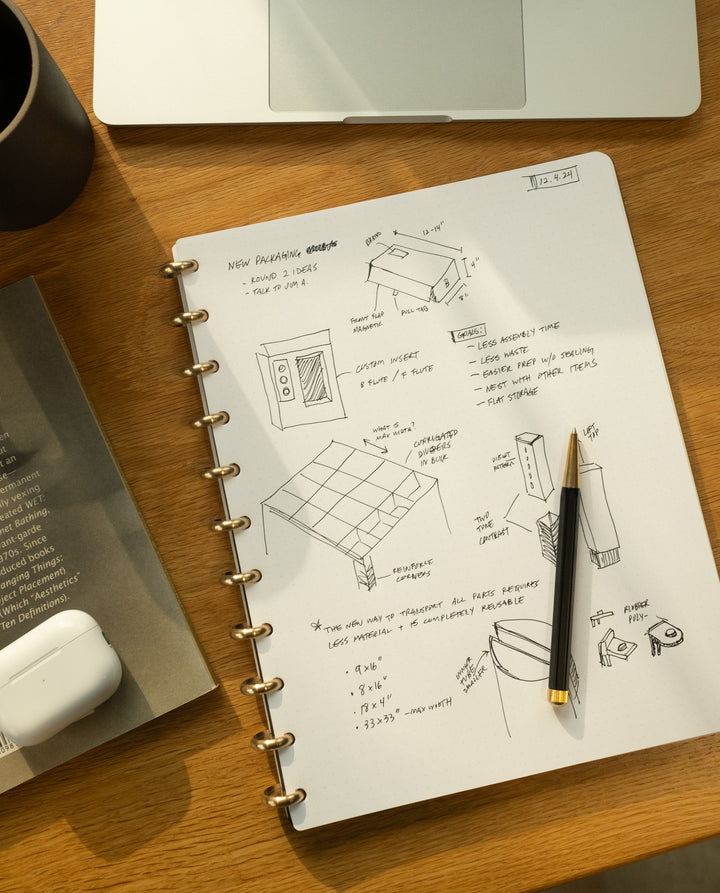 12.4.24
NEW PACKAGING
- ROUND 2 IDEAS
- TALK TO JIM A.
BRAND
12-14"
4"
8"
B
FRONT FLAP
MAGNETIC
PULL TAB
CUSTOM INSERT
B FLUTE / F FLUTE
GOALS:
- LESS ASSEMBLY TIME
- LESS WASTE
- EASIER PREP W/O SEALING
- NEST WITH OTHER ITEMS
- FLAT STORAGE
WHAT IS
MAX WIDTH?
CORRUGATED
DIVIDERS
IN BULK
REINFORCE
CORNERS
LIFT
TOP
TWO
TONE
CONTRAST
* THE NEW WAY TO TRANSPORT ALL PARTS REQUIRES
LESS MATERIAL + IS COMPLETELY REUSABLE
• 9x16"
• 8x16"
• 18x4"
• 33x33" - MAX WIDTH
INNER
TUBE
SMALLER
RUBBER
POLY-
en
at
t an
se—
ermanent
ly vexing
eated WET:
met Bathing,
vant-garde
970s. Since
duced books
anging Things:
ject Placement)
(Which "Aesthetics"
Ten Definitions).